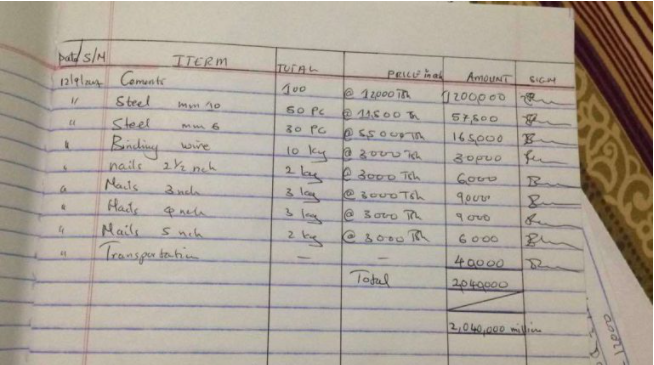 Date S/N ITERM TOTAL PRICE AMOUNT SIGN
Cements 100 @ 12000 Tsh 1200,000
" Steel mm 10 50 PC @ 11,500 57,500
" Steel mm 6 30 PC @ 5500 Tsh 165,000
" Binding wire 10 kg @ 3000 Tsh 30,000
nails 2 1/2 nch 2 kg @ 3000 Tsh 6,000
Mails 3 nch 3 kg @ 3000 Tsh 9,000
" Mails 4 nch 3 kg @ 3000 Tsh 9,000
" Mails 5 nch 2 kg @ 3000 Tsh 6000
" Transportation — — 40,000
Total 2,040,000
2,040,000 million